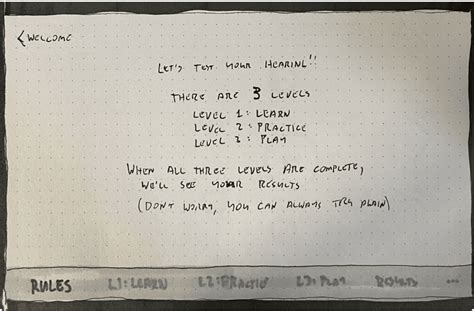 < WELCOME
LET'S TEST YOUR HEARING!!
THERE ARE 3 LEVELS
LEVEL 1: LEARN
LEVEL 2: PRACTICE
LEVEL 3: PLAY
WHEN ALL THREE LEVELS ARE COMPLETE,
WE'LL SEE YOUR RESULTS
(DON'T WORRY, YOU CAN ALWAYS TRY AGAIN)
RULES L1: LEARN L2: PRACTICE L3: PLAY RESULTS ...